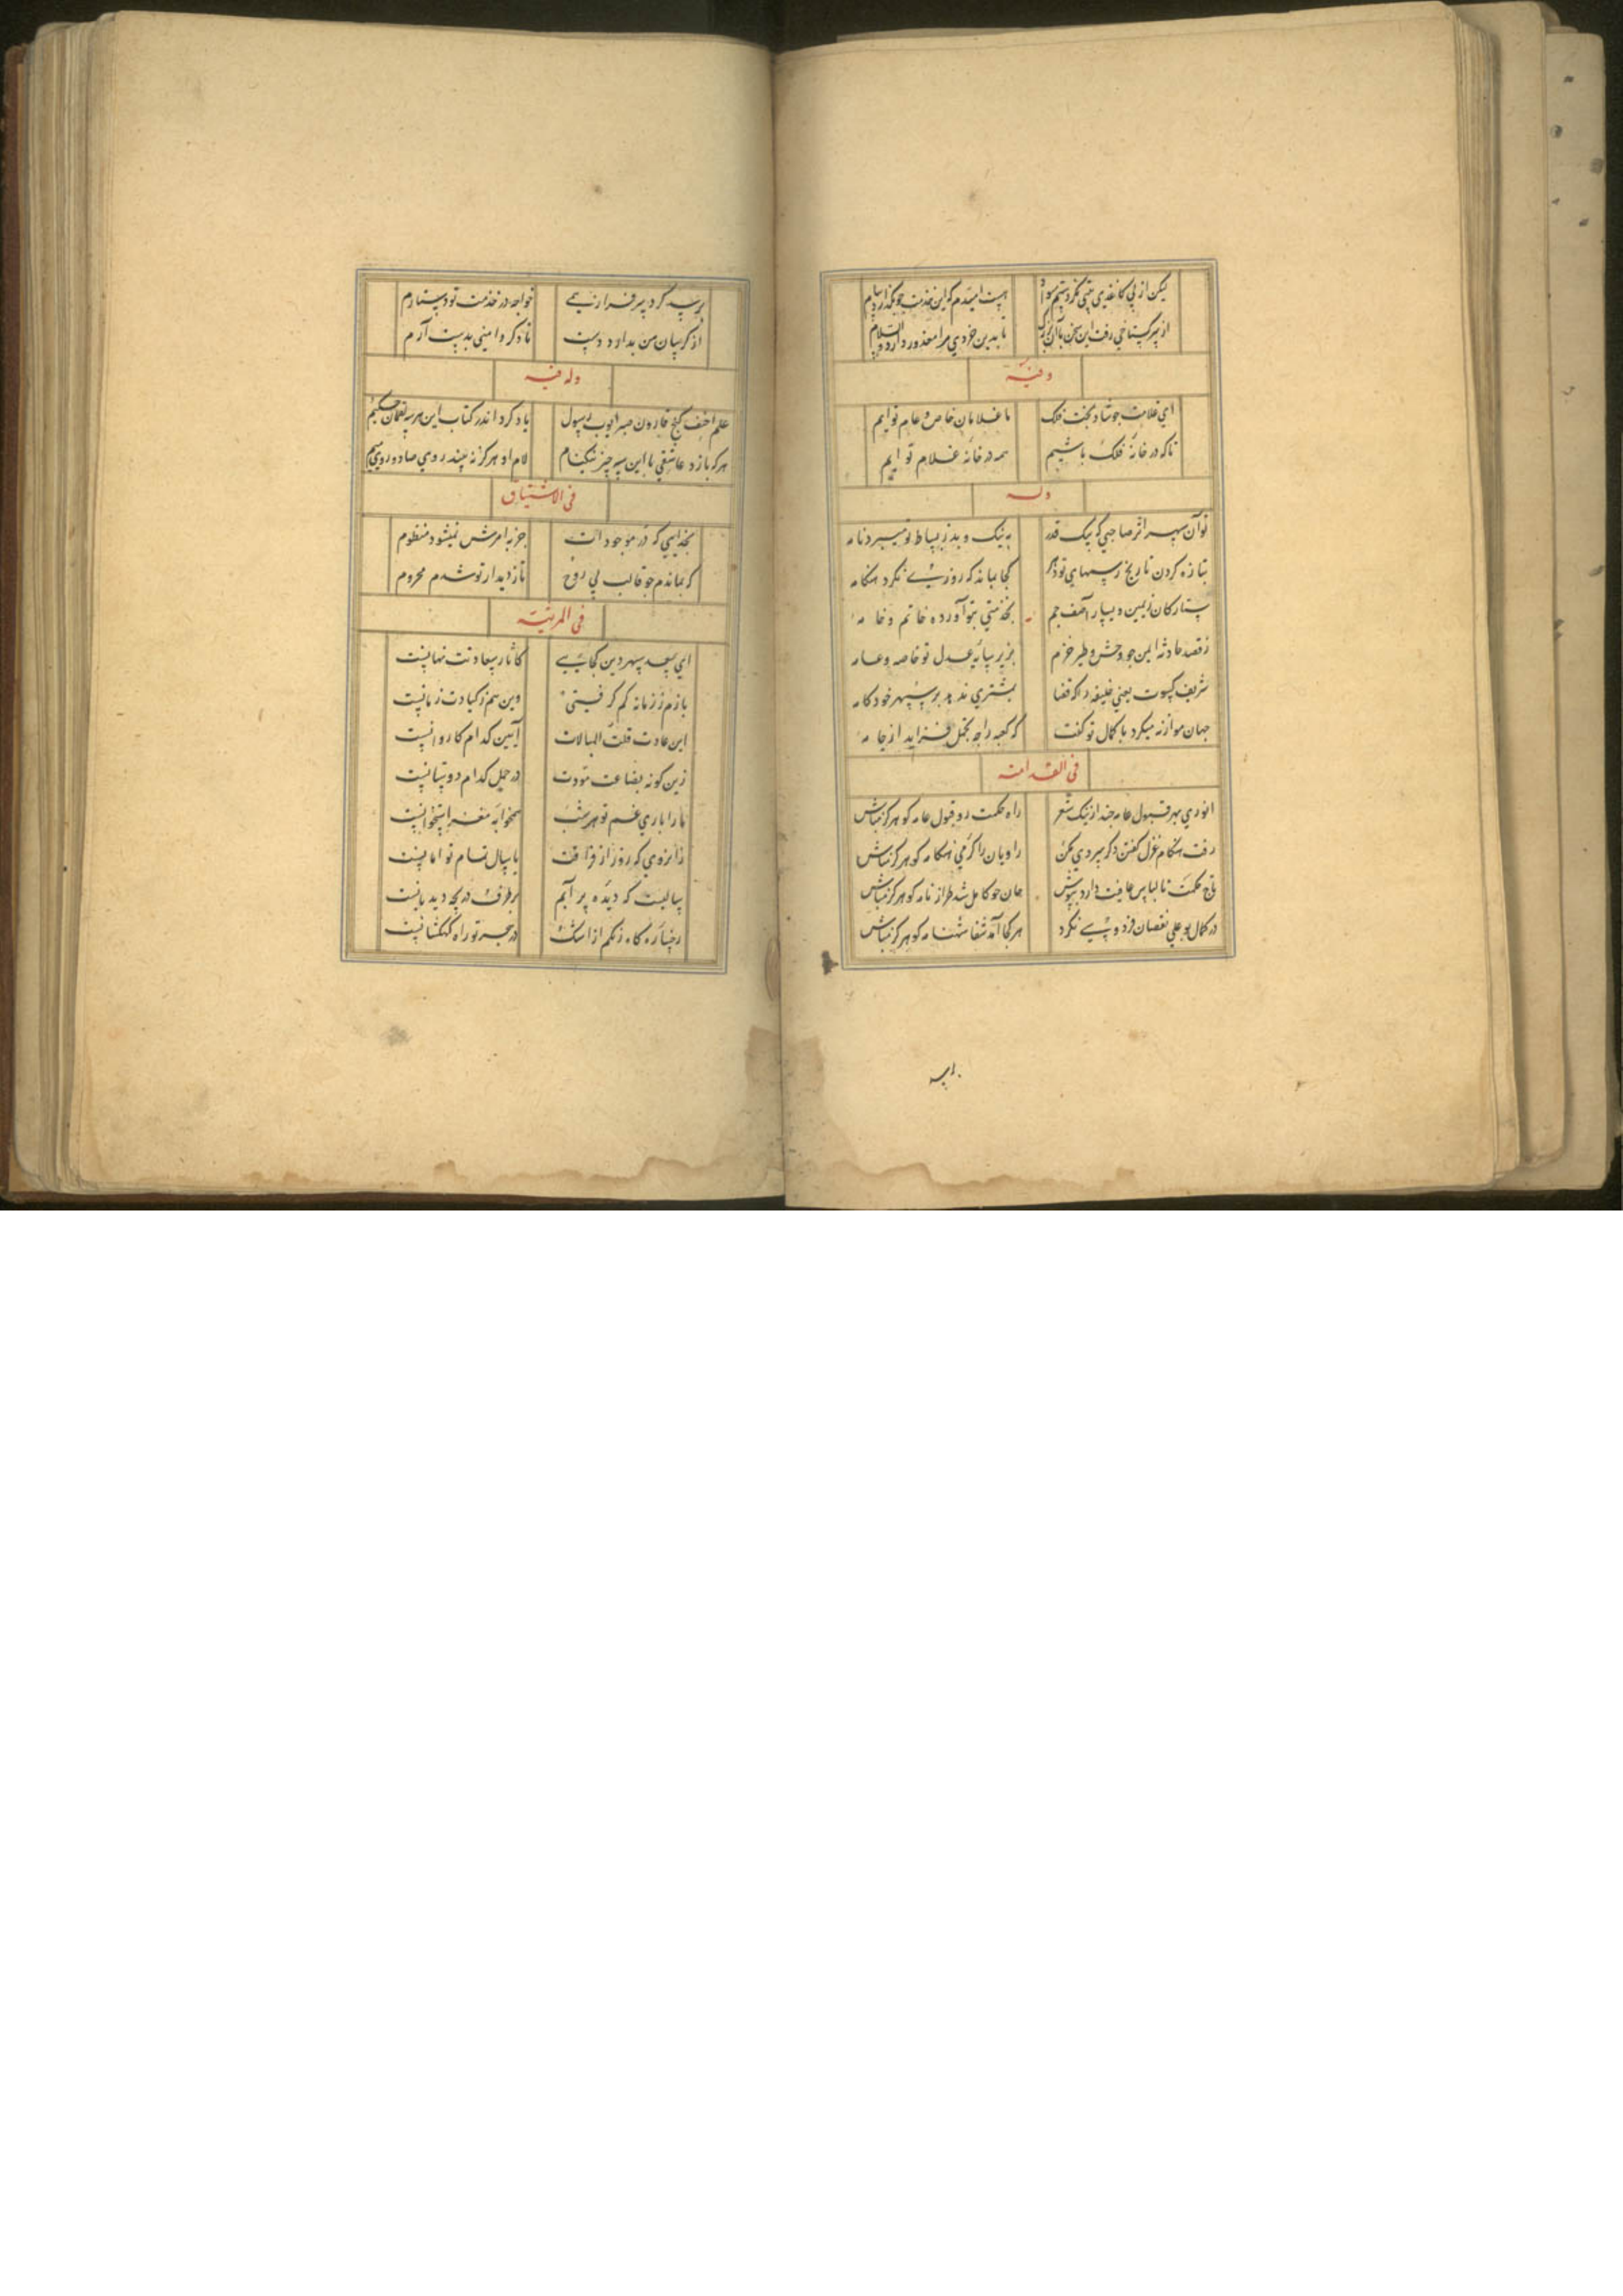 لیکن از پی کاغذی چتی نکردستم سواد
هست امیدم که این خدمت چو بگذارد پیام
از سر گستاخی رفت این سخن با آن بزرگ
تا بدین خردی مرا معذور دارد والسلام
وفیه
ای غلامت چو شاد بخت فلک
ما غلامان خاص و عام توایم
تا که در خانه فلک باشیم
همه در خانه غلام توایم
وله
تو آن سپهر اثر صاحبی که پیک قدر
به نیک و بد ز بساط تو میبرد نامه
بتازه کردن تاریخ رسمهای تو در
کجا بماند که روزی نکرد هنگامه
ستارگان ز یمین و یسار آصف جم
بخدمتی بتو آورده خاتم و خامه
ز قصد حادثه ایمن چو وحش و طیر حرم
بزیر سایه عدل تو خاصه و عامه
شریف کسوت یعنی خلیفه را که قضا
بمشتری ندهد بر سپهر خودکامه
جهان موازنه میکرد با کمال تو گفت
که کعبه را چه تجمل فزاید از جامه
فی القدامة
انوری بهر قبول عامه چند از ننگ شعر
راه حکمت رو قبول عامه گو هرگز مباش
رفت هنگام غزل گفتن دگر سردی مکن
راویان را گرمی هنگامه گو هرگز مباش
تاج حکمت با لباس عافیت دارد بپوش
جان چو کامل شد طراز نامه گو هرگز مباش
در کمال بوعلی نقصان فردوسی نگر
هر کجا آمد شفا شهنامه گو هرگز مباش
پرسه کرد پیر فراز همی
خواجه در خدمت تو دستارم
از گریبان من بدارد دست
تا دگر دامنی بدست آرم
وله فیه
علم احنف گنج قارون صبر ایوب رسول
یاد کرد اندر کتاب این هر سه لقمان حکیم
هر که بازد عاشقی با این سه چیز نیکنام
لام او هرگز نه بیند روی صاد و روی میم
فی الاشتیاق
بخدایی که در موجودات
جز به امرش نمیشود منظوم
که بماندم چو قالب بی روح
تا ز دیدار تو شدم محروم
فی المرثیة
ای سعد سپهر دین کجایی
کآثار سعادتت نهانیست
بازم ز زمانه کم گرفتی
وین هم ز کیادت زمانیست
این عادت قلت المبالات
آیین کدام کاروانیست
زین گونه بضاعت مودت
در حمل کدام دوستانیست
ما را باری غم تو هر شب
همخوابه مغز استخوانیست
زآنروی که روز از فراقت
با سال تمام توامانیست
سالیست که دیده پر آبم
بر طرف دریچه دیده بانیست
رخساره کاه رنگم از اشک
در هجر تو راه کهکشانیست
ای سعد